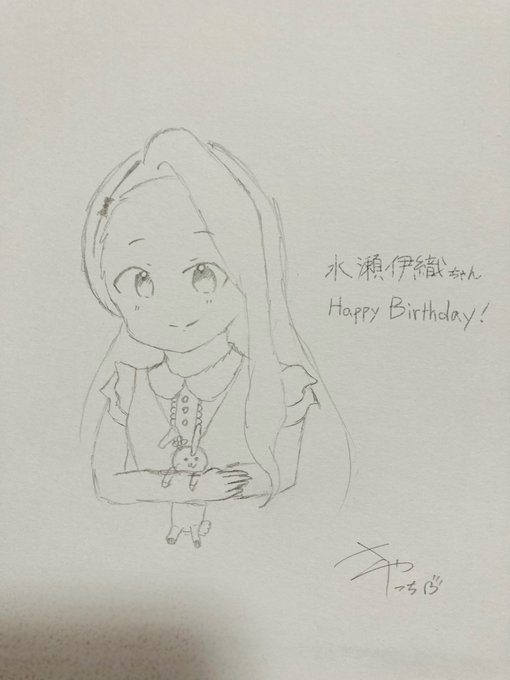 水瀬伊織ちゃん
Happy Birthday!